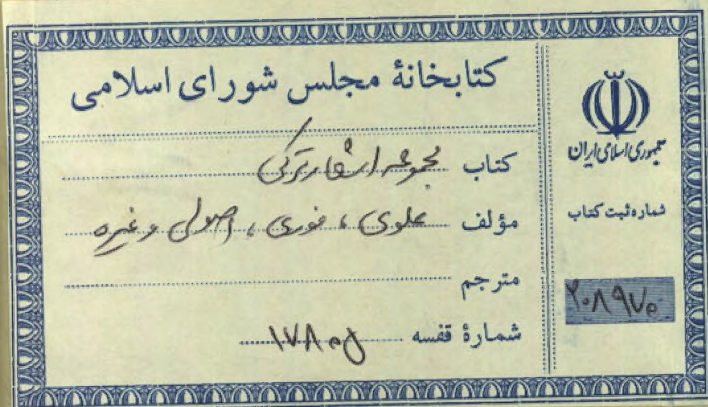 کتابخانهٔ مجلس شورای اسلامی
کتاب مجموعه اشعار ترکی
مؤلف علوی ، فوری ، اصولی وغیره
مترجم
شمارهٔ قفسه ۱۷۸۰۵
جمهوری اسلامی ایران
شماره ثبت کتاب
۲۰۸۹۷۵